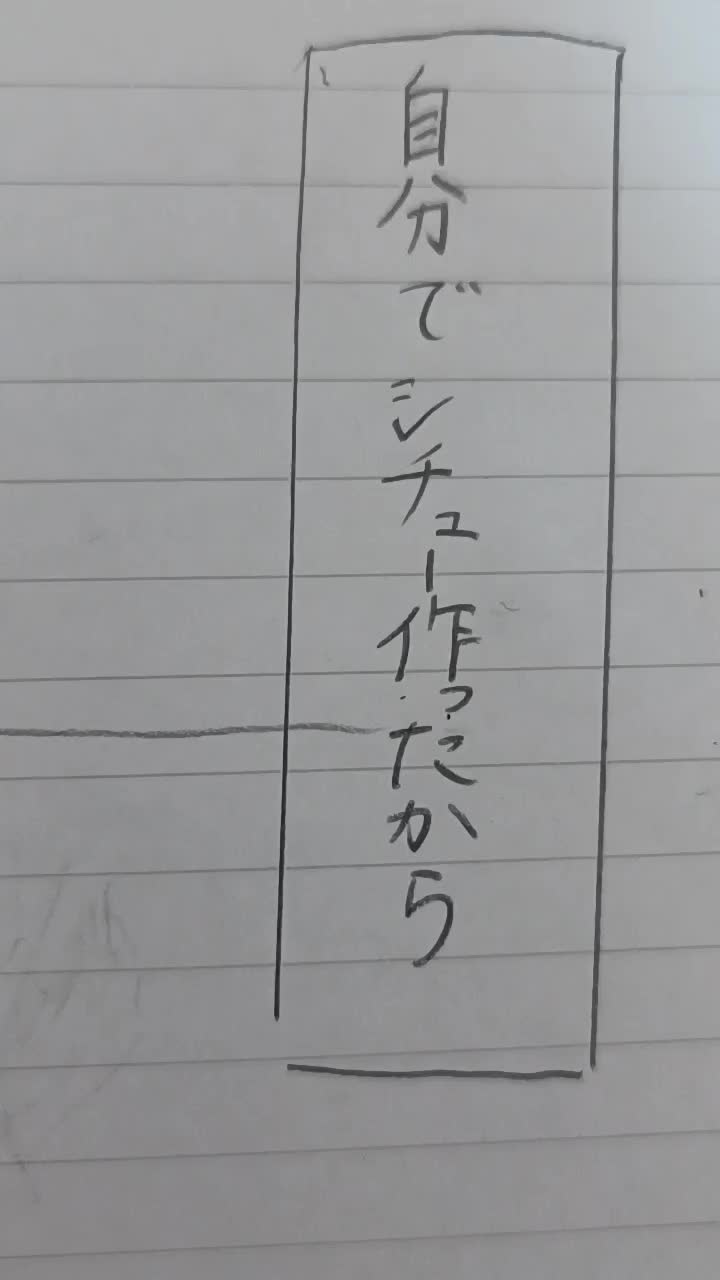 自分でシチュー作ったから